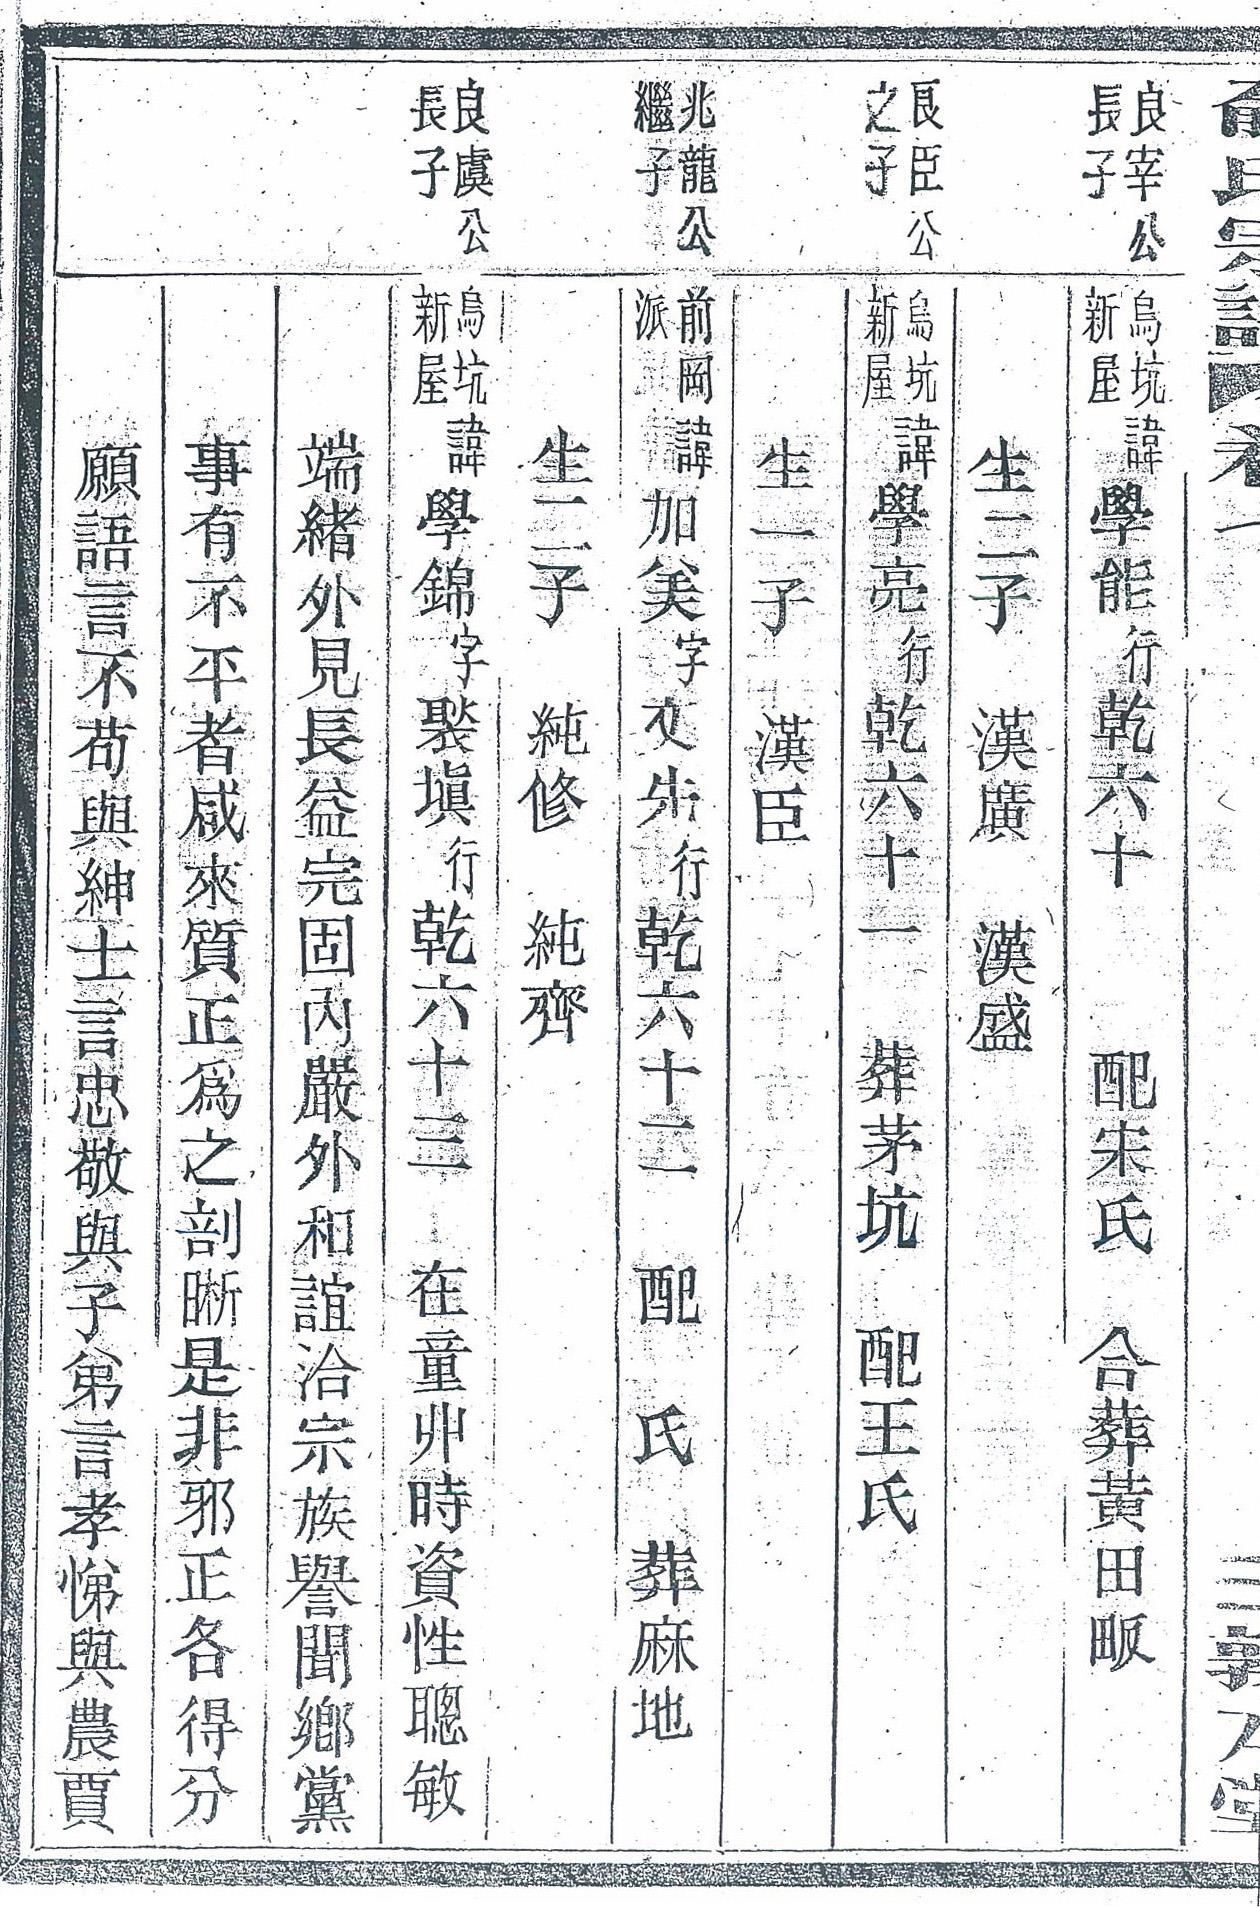 氏宗譜 卷一
良宰公長子
烏坑新屋諱學能行乾六十 配宋氏 合葬黃田畈
生二子 漢廣 漢盛
良臣公之子
烏坑新屋諱學亮行乾六十一 葬茅坑 配王氏
生一子 漢臣
兆龍公繼子
前岡派諱加美字文先行乾六十二 配 氏 葬麻地
生二子 純修 純齊
良虞公長子
烏坑新屋諱學錦字褧塡行乾六十三 在童丱時資性聰敏
端緒外見長益完固內嚴外和誼洽宗族譽聞鄉黨
事有不平者咸來質正爲之剖晰是非邪正各得分
願語言不苟與紳士言忠敬與子弟言孝悌與農賈